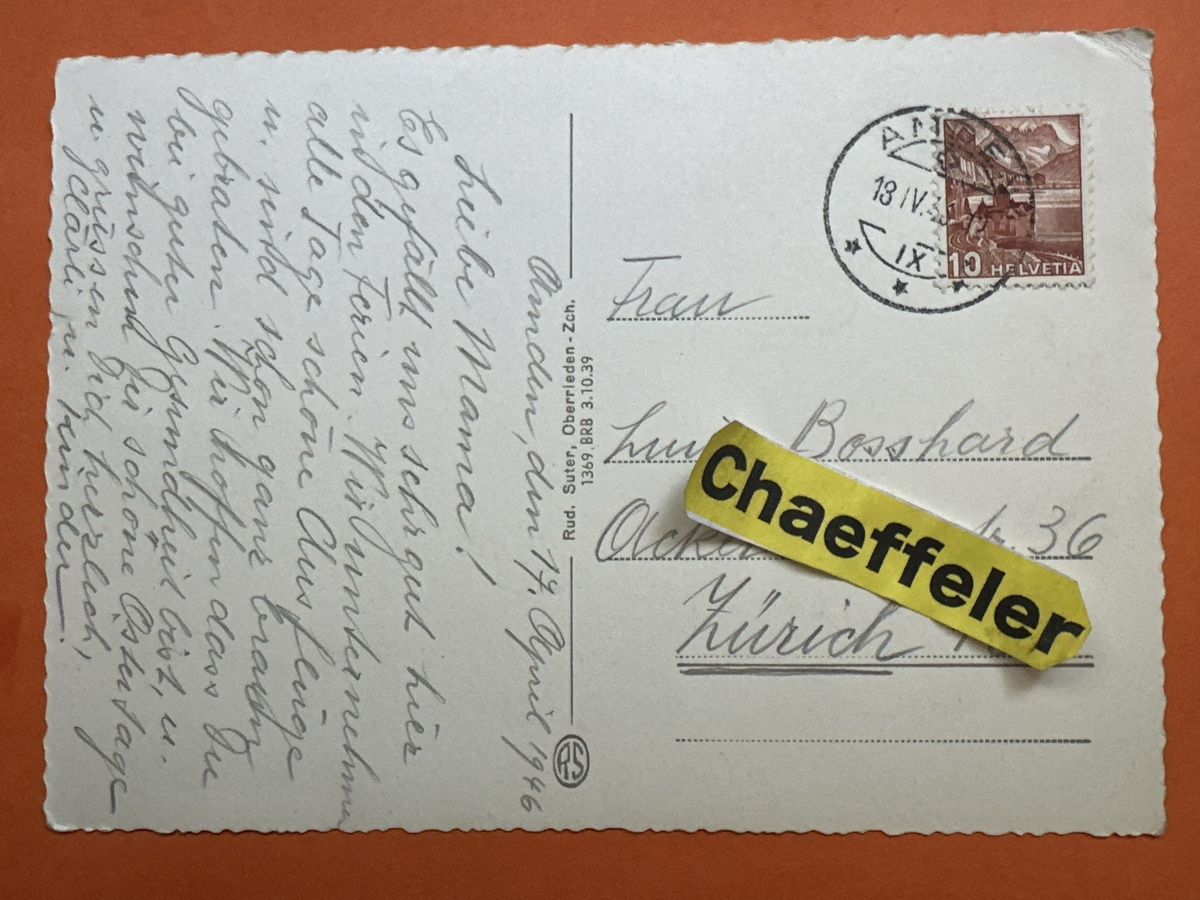 Amden, den 17. April 1946
Liebe Mama!
Es gefällt uns sehr gut hier
in den Ferien. Wir unternehmen
alle Tage schöne Ausflüge
u. sind schon ganz braun
gebraten. Wir hoffen dass Du
bei guter Gesundheit bist, u.
wünschen Dir schöne Ostertage
u. grüssen Dich herzlich,
Clärli u. Kinder.
Rud. Suter, Oberrieden - Zch.
1369. BRB 3.10.39
RS
AMDE
18 IV.
IX
10 HELVETIA
Frau
Bosshard
36
Zürich
Chaeffeler